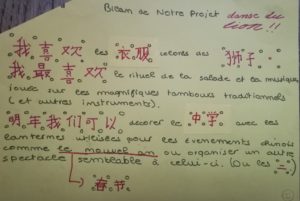 Bilan de Notre Projet danse du lion !!!
我喜欢 les 衣服 colorés des 狮子.
我最喜欢 le rituel de la salade et la musique
jouée sur les magnifiques tambours traditionnels
(et autres instruments).
明年我们可以 décorer le 中学 avec les
lanternes utilisées pour les évènements chinois
comme le nouvel an ou organiser un autre
spectacle semblable à celui-ci. (Ou les 二)
春节